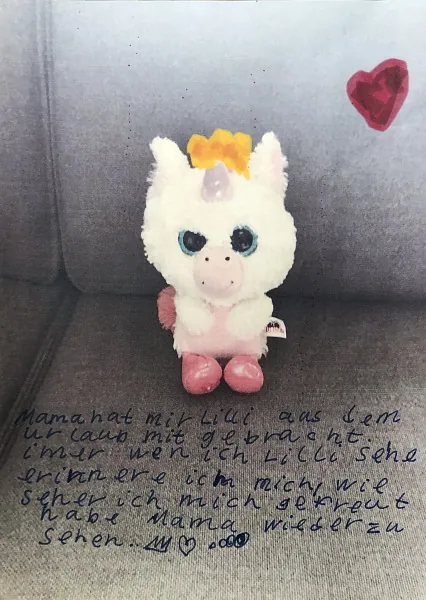 Mama hat mir Lilli aus dem
urlaub mit gebracht.
imer wen ich Lilli sehe
erinnere ich mich, wie
seher ich mich gefreut
habe Mama wieder zu
sehen..